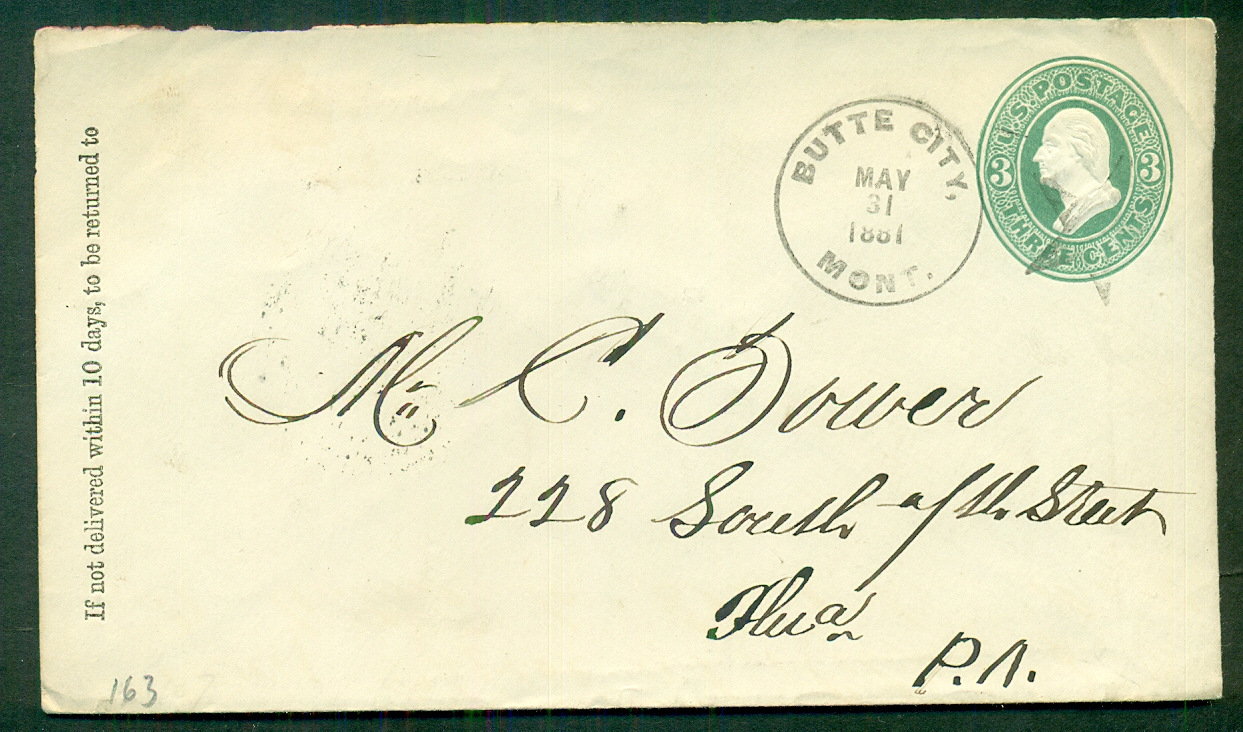 If not delivered within 10 days, to be returned to
BUTTE CITY,
MAY
31
1881
MONT.
U.S. POSTAGE
3 3
THREE CENTS
Mr C. Tower
228 South 4th Street
Phila
P.A.
163